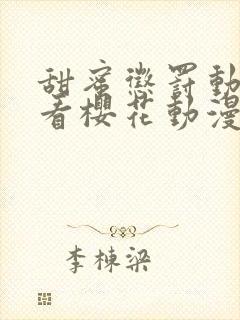 甜蜜懲罰動
看櫻花動漫
李棟梁